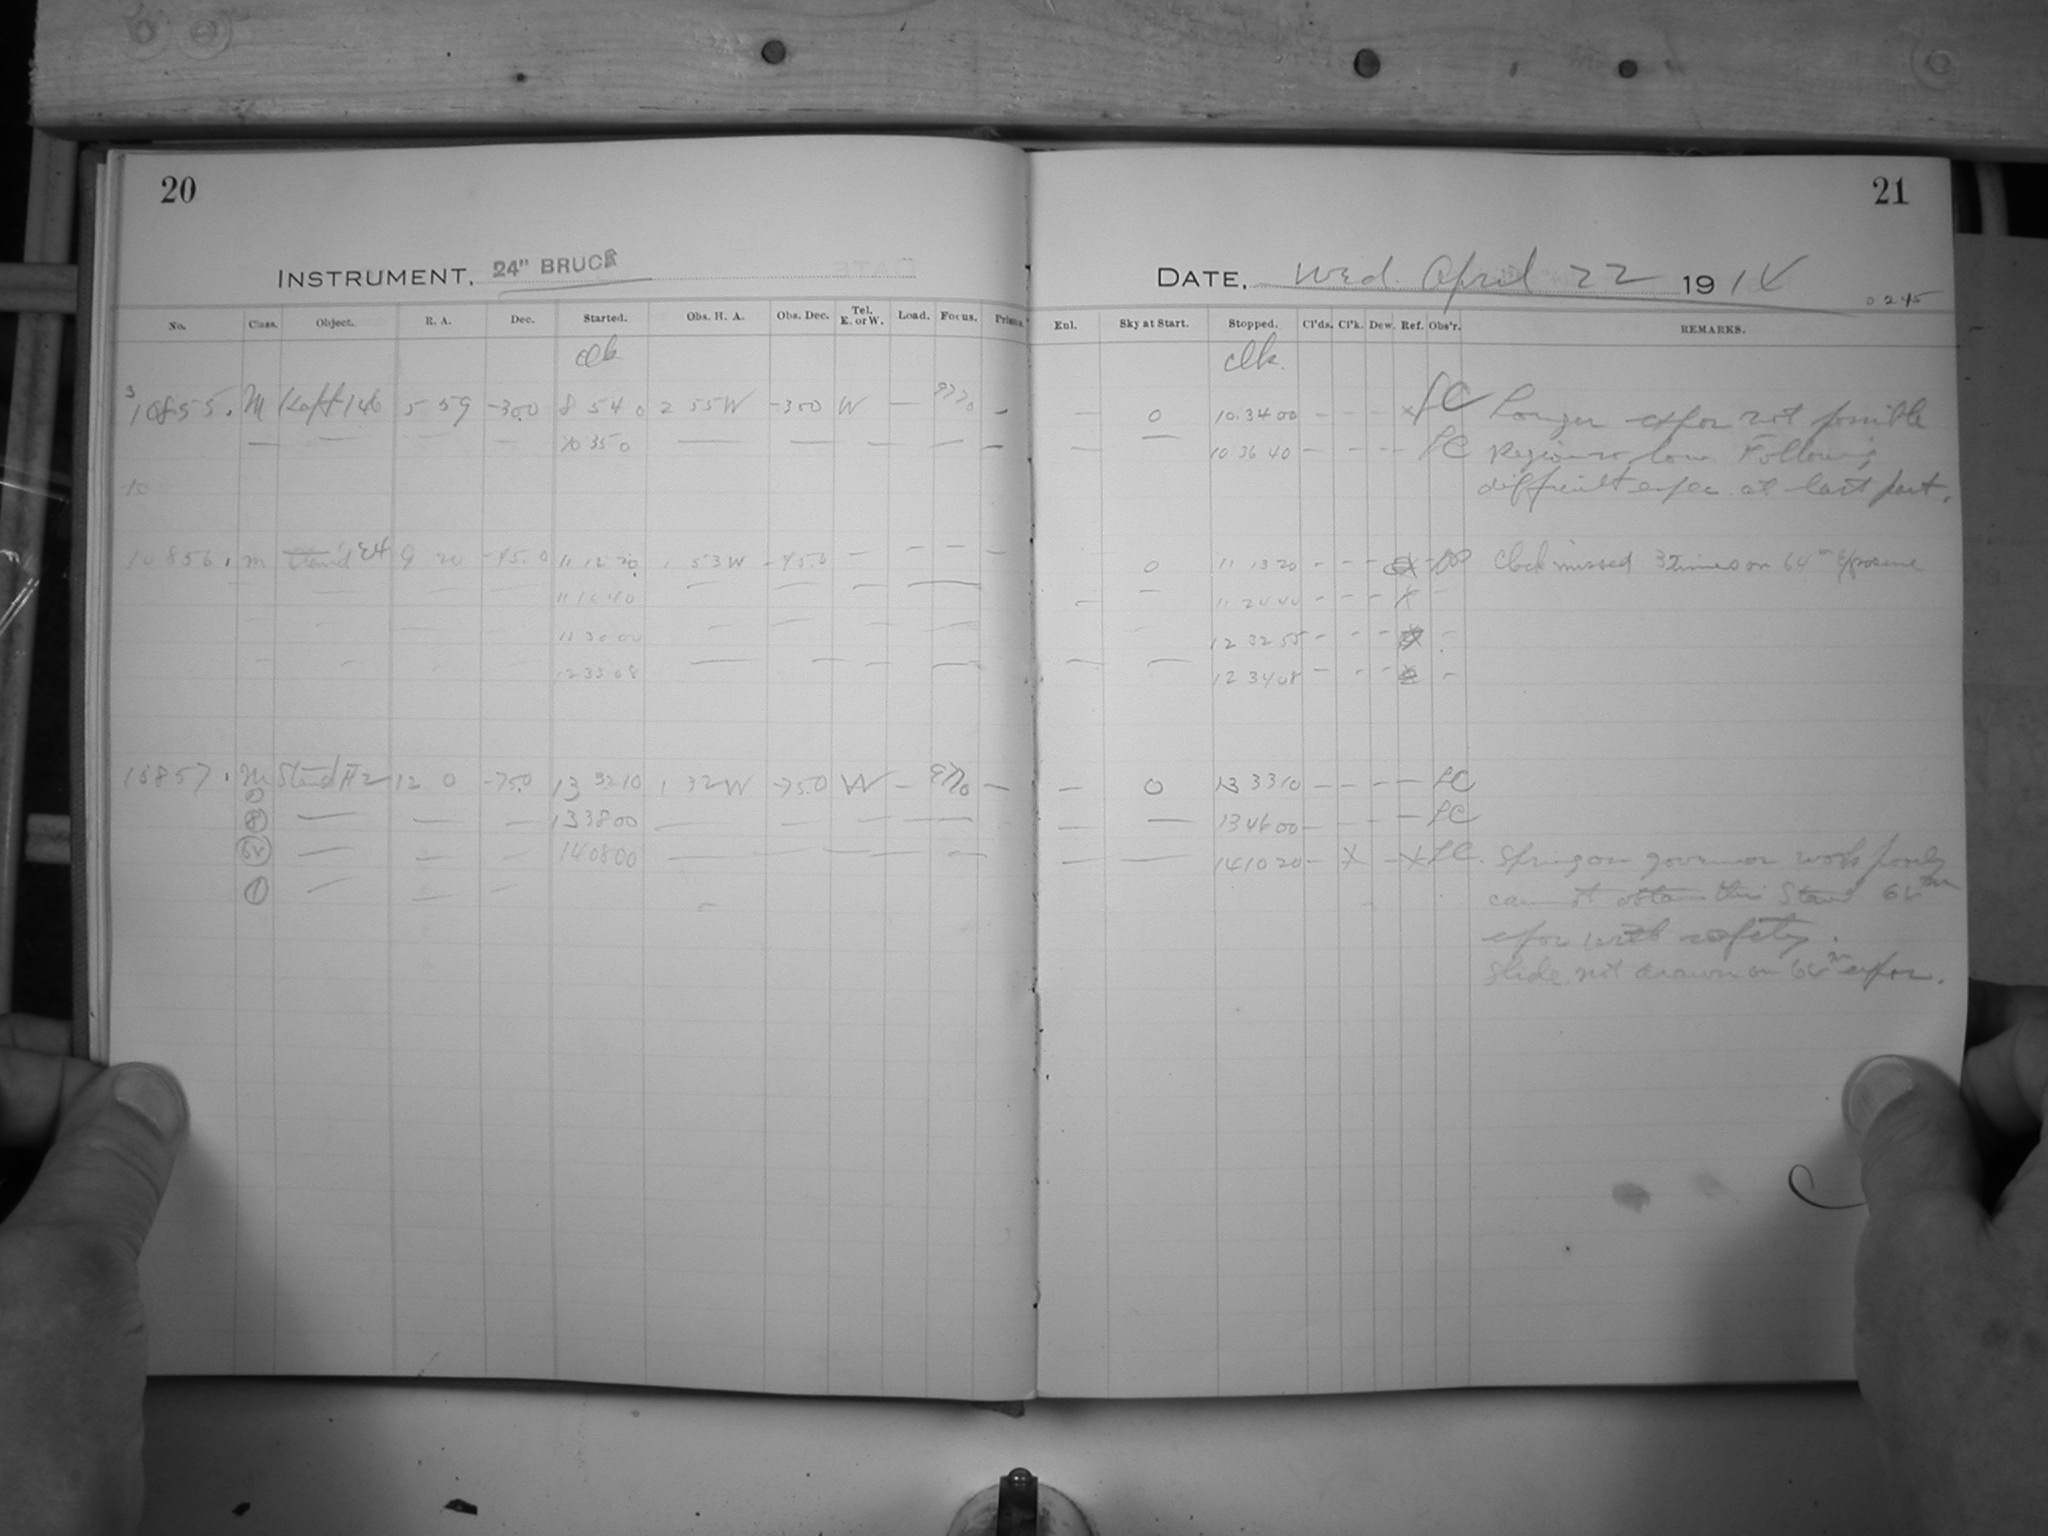 20
INSTRUMENT, 24" BRUCE
No. Class. Object. R. A. Dec. Started. Obs. H. A. Obs. Dec. Tel. E. or W. Load. Focus. Prisms.
clk
10855. M Kapt 146 5 59 -30.0 8 54 0 2 55W -30.0 W —
10 35 0
10
10856. m Stand E4 9 -45.0 11 12 20 1 53W -45.0
11 16 40
11 30 00
12 33 08
10857. M Stand H2 12 0 -75.0 13 32 10 1 32W -75.0 W —
13 38 00
14 08 00
21
DATE, Wed. April 22 1914
Enl. Sky at Start. Stopped. Cl'ds. Cl'k. Dew. Ref. Obs'r. REMARKS.
clk.
0 10.34 00 - - - x LC Longer expos not possible
10.36 40 - - - LC Region too low. Following
difficult expos. at last part.
0 11 13 20 - - - Clock missed 3 times on 64m exposure
11 24 40 - - - X -
12 32 55 - - -
12 34 08 - - -
0 13 33 10 - - - - LC
13 46 00 - - - - LC
14 10 20 - X - X LC. Spring on governor works poorly
cannot obtain this Stand 64m
expos with safety.
Slide not drawn on 64m expos.